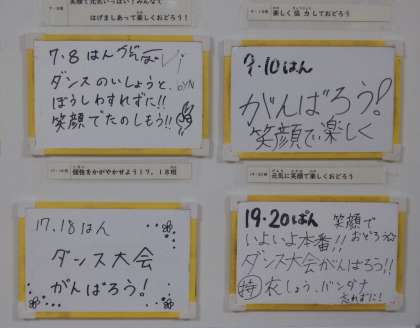 笑顔で元気いっぱい！みんなで
はげましあって楽しくおどろう！
7・8はん
ダンスのいしょうと、
ぼうしわすれずに!!
笑顔でたのしもう!!
楽しく協力しておどろう！
9・10はん
がんばろう!
笑顔で楽しく
個性をかがやかせよう17，18班
17.18はん
ダンス大会
がんばろう!
元気に笑顔で楽しくおどろう
19・20ばん 笑顔で
いよいよ本番!! おどろう☆
ダンス大会がんばろう!!
持 衣しょう、バンダナ
忘れずに!